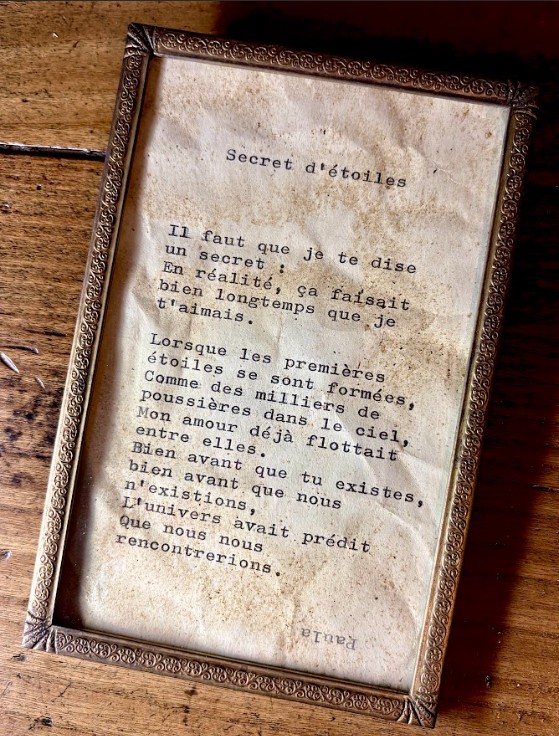 Secret d'étoiles
Il faut que je te dise
un secret :
En réalité, ça faisait
bien longtemps que je
t'aimais.
Lorsque les premières
étoiles se sont formées,
Comme des milliers de
poussières dans le ciel,
Mon amour déjà flottait
entre elles.
Bien avant que tu existes,
bien avant que nous
n'existions,
L'univers avait prédit
Que nous nous
rencontrerions.
Paula